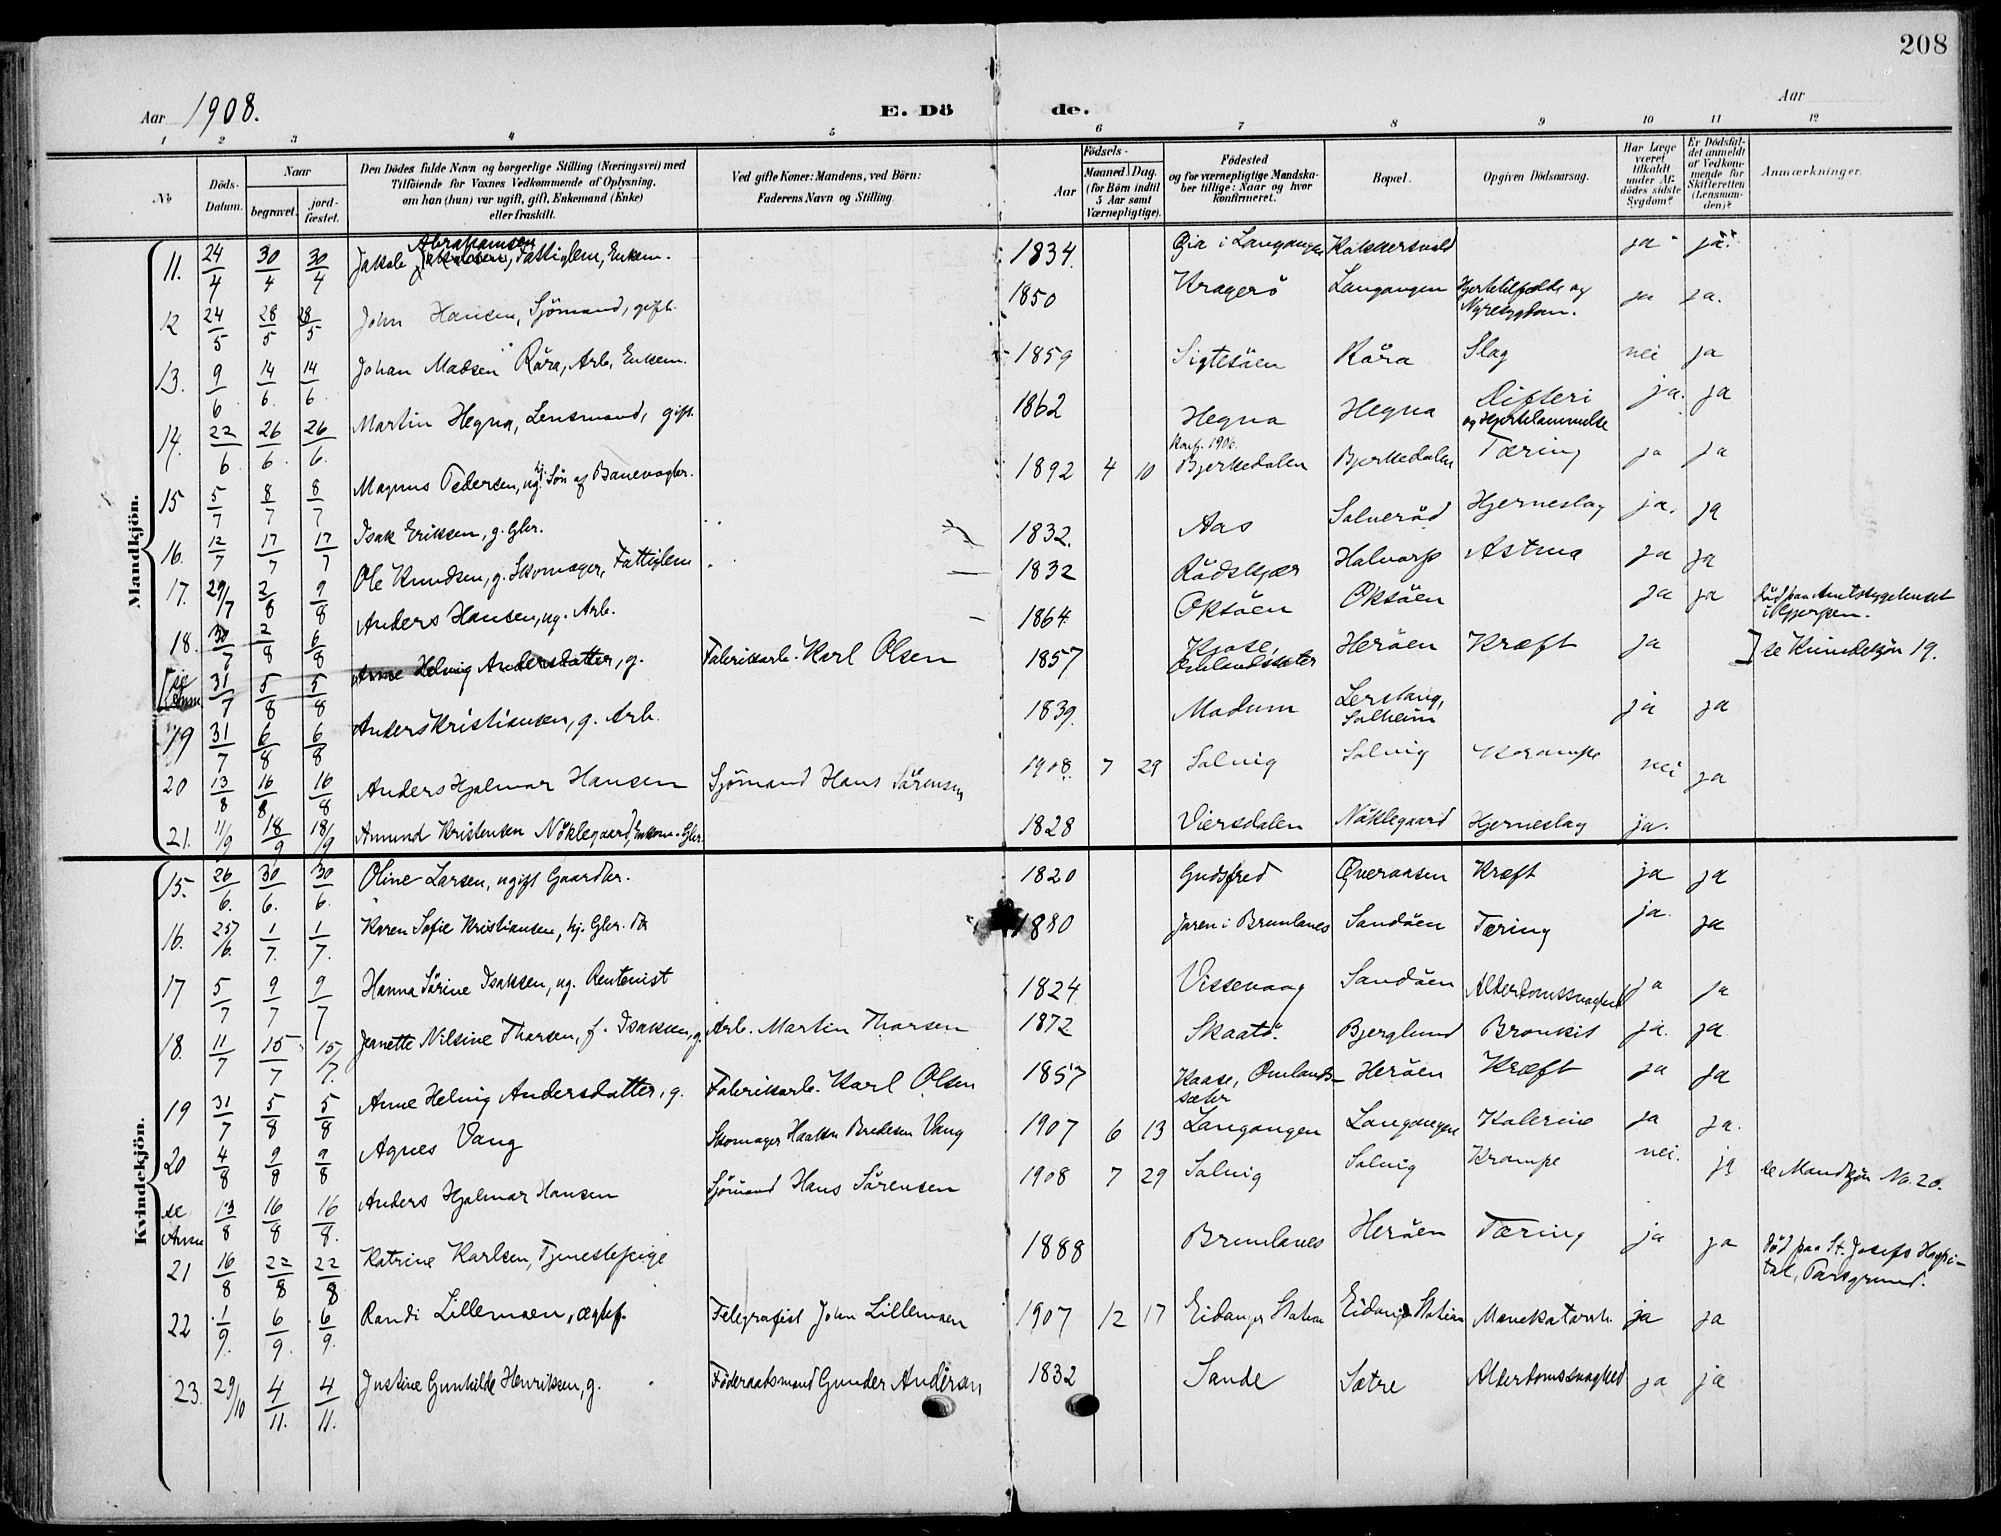 208
Aar 1908. E. Dö de. Aar
1 2 3 4 5 6 7 8 9 10 11 12
No Döds-Datum. Naar begravet. jord-fæstet. Den Dödes fulde Navn og borgerlige Stilling (Næringsvei) med Tilföiende for Voxnes Vedkommende af Oplysning, om han (hun) var ugift, gift, Enkemand (Enke) eller fraskilt. Ved gifte Koner: Mandens, ved Börn: Faderens Navn og Stilling. Födsels- Aar Maaned Dag. (for Börn indtil 5 Aar samt Værnepligtige). Födested og for værnepligtige Mandskaber tillige: Naar og hvor konfirmeret. Bopæl. Opgiven Dödsaarsag. Har Læge været tilkaldt under Afdödes sidste Sygdom? Er Dödsfaldet anmeldt af Vedkommende for Skifteretten (Lensmanden)? Anmærkninger.
Mandkjön.
11. 24/4 30/4 30/4 Jakob Abrahamsen, Fattiglem, Enkem. 1834. i Langangen ja ja.
12 24/5 28/5 28/5 John Hansen, Sjømand, gift. 1850 Kragerö Langangen Hjertetilfælde og Nyresygdom. ja ja.
13. 9/6 14/6 14/6 Johan Madsen Röra, Arb. Enkem. 1859 Sigtesöen Röra Slag nei ja
14. 22/6 26/6 26/6 Martin Hegna, Lensmand, gift. 1862 Hegna Hegna Difteri og Hjertelammelse ja. ja
15 5/7 8/7 8/7 Magnus Pedersen, ug. hj. Søn af Banevogter. 1892 4 10 Konf. 1906. Bjerkedalen Bjerkedalen Tæring ja ja
16. 12/7 17/7 17/7 Isak Eriksen, g. Gbr. 1832. Aas Salveröd Hjerneslag ja. ja
17. 29/7 2/8 9/8 Ole Knudsen, g. Skomager, Fattiglem 1832 Rödskjær Halvarp Astma ja ja
18. 30/7 2/8 6/8 Anders Hansen, ug. Arb. 1864 Oksöen Oksöen ja ja Död paa Amtssygehuset i Gjerpen.
[se Anm 31/7 5/8 5/8 Anne Helvig Andersdatter, g. Fabrikarb. Karl Olsen 1857 Kjose, Omlandsæter Heröen Kræft ja ] se Kvindekjön 19.
19 31/7 6/8 6/8 Anders Kristiansen, g. Arb. 1839. Modum Lerstang, Solheim ja ja
20 13/8 16/8 16/8 Anders Hjalmar Hansen Sjømand Hans Sörensen 1908. 7 29 Solvig Solvig Krampe nei ja
21. 11/9 18/9 18/9 Amund Kristensen Nöklegaard, Enkem. Gbr. 1828 Viersdalen Nöklegaard Hjerneslag ja.
Kvindekjön.
15. 26/6. 30/6. 30/6. Oline Larsen, ugift Gaardbr. 1820 Gudsfred Överaasen Kræft ja ja
16. 25/6. 1/7. 1/7. Karen Sofie Kristiansen, hj. Gbr. Dtr 1880 Jaren i Brunlanes Sandöen Tæring ja. ja
17 5/7 9/7 9/7 Hanna Sörine Isaksen, ug. Rentenist 1824 Vissevaag Sandöen Alderdomssvaghed ja ja
18. 11/7 15/7 15/7. Jeanette Nilsine Thorsen, f. Isaksen, g. Arb. Martin Thorsen 1872 Skaatö. Bjerglund Bronkit ja. ja.
19 31/7 5/8 5/8 Anne Helvig Andersdatter, g. Fabrikarb. Karl Olsen 1857 Kaase, Omlandssæter Heröen Kræft ja ja
20 4/8 9/8 9/8 Agnes Vang Skomager Haakon Bredesen Vang 1907 6 13 Langangen Langangen Kolerine ja ja.
se Anm 13/8 16/8 16/8. Anders Hjalmar Hansen Sjömand Hans Sörensen 1908 7 29 Solvig Solvig Krampe nei. ja se Mandkjön No. 20.
21 16/8 22/8 22/8 Katrine Karlsen, Tjenestepige 1888 Brunlanes Heröen Tæring ja ja Död paa St. Josefs Hospital, Porsgrund.
22 1/9. 6/9. 6/9. Randi Lillemoen, ægtef. Telegrafist John Lillemoen 1907 12 17 Eidanger Station Eidanger Station Mavekatarrh ja ja
23. 29/10 4/11. 4/11. Justine Gunhilde Henriksen, g. Föderaadsmand Gunder Andersen 1832 Sande Sætre Alderdomssvaghed ja ja